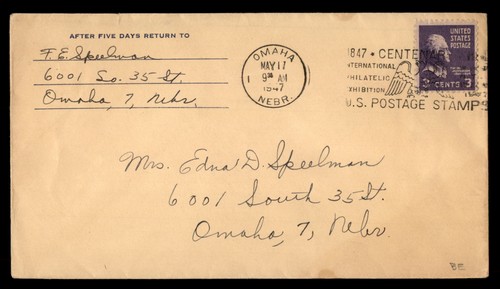 AFTER FIVE DAYS RETURN TO
F. E. Speelman
6001 So. 35 St.
Omaha, 7, Nebr.
OMAHA
MAY 17
1 9³⁰ AM
1947
NEBR.
1847 • CENTENARY
INTERNATIONAL
PHILATELIC
EXHIBITION
U.S. POSTAGE STAMPS
UNITED
STATES
POSTAGE
3 CENTS 3
Mrs. Edna D. Speelman
6001 South 35 St.
Omaha, 7, Nebr.
BE